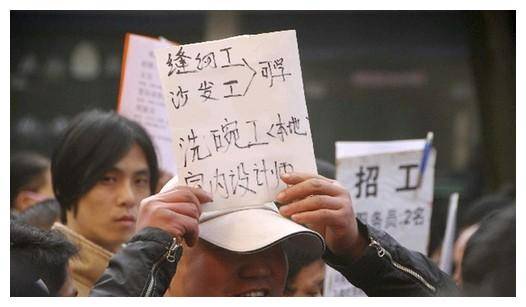 缝纫工
沙发工
可学
洗碗工<本地
室内设计师
招工
务员:2名